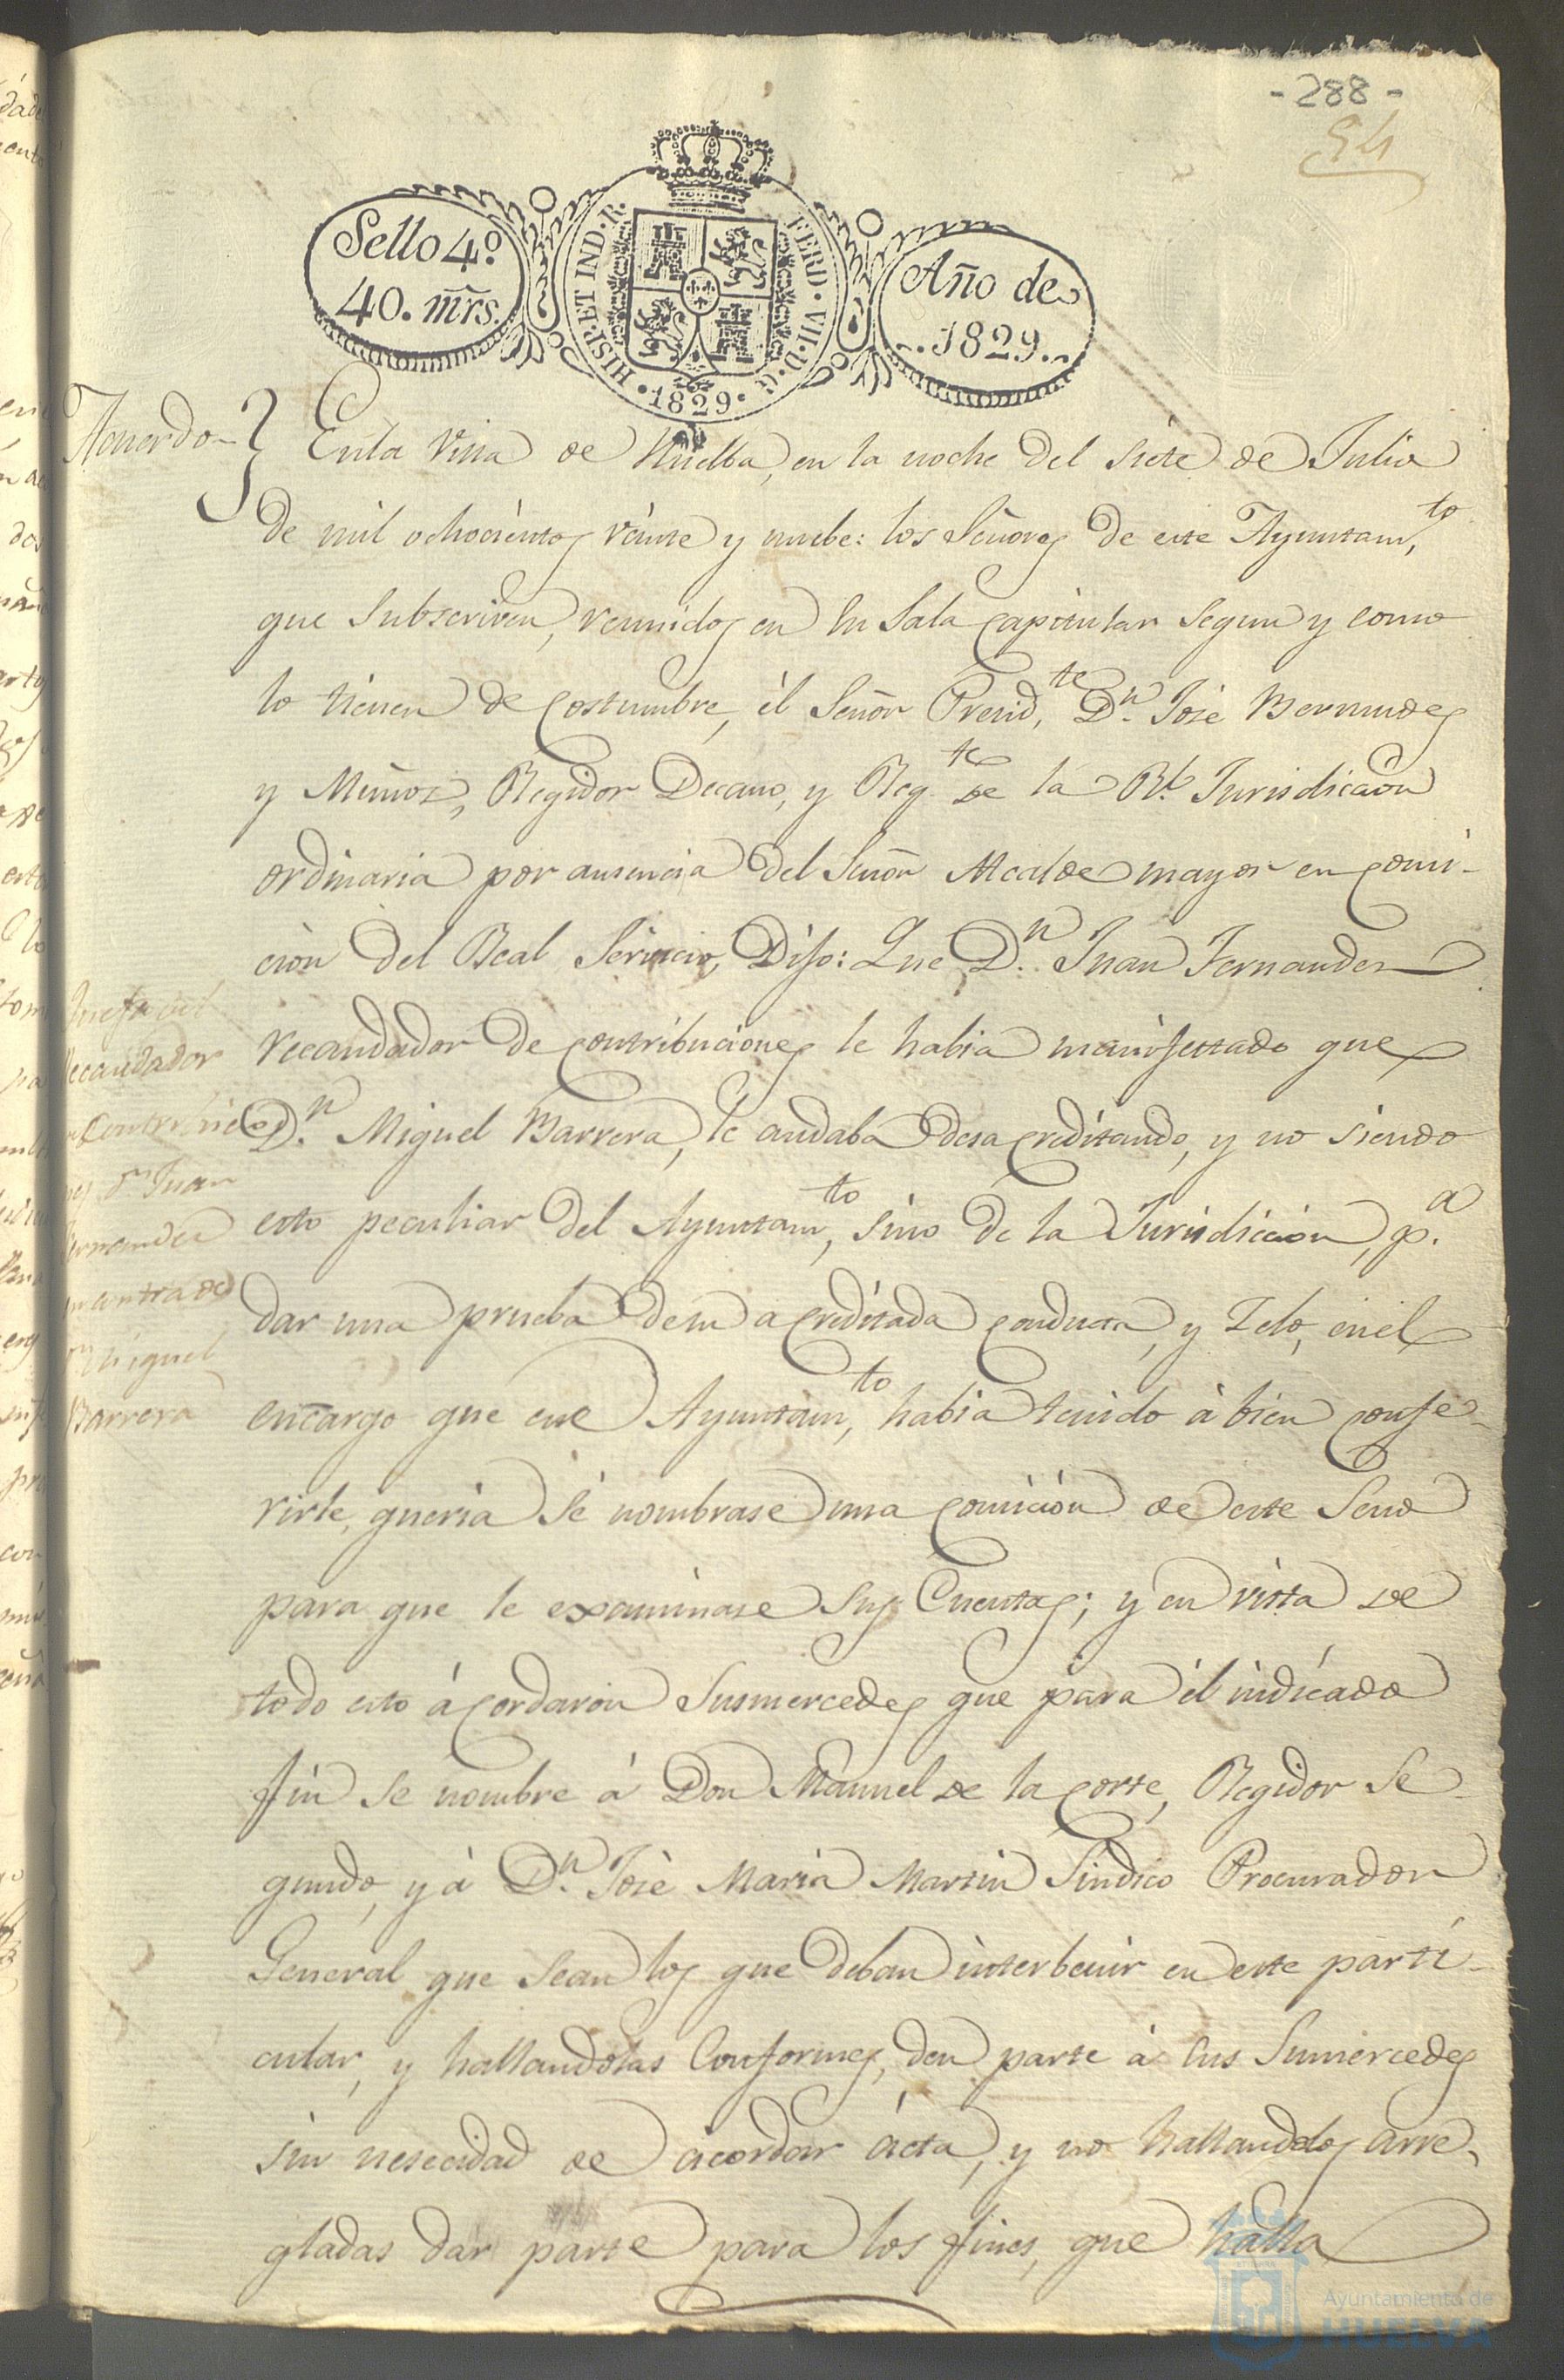 - 288 -
54
Sello 4º
40. mrs.
HISP. ET IND. R.
FERD. VII. D. G.
1829
Año de
1829
Acuerdo
En la Villa de Huelba, en la noche del siete de Julio
de mil ochocientos veinte y nuebe: los Señores de este Ayuntam.to
que subscriven, reunidos en su Sala capitular segun y como
lo tienen de costumbre, el Señor Presid.te D.n José Bermudes
y Muñoz, Regidor Decano, y Reg.te de la Rl. Jurisdiccion
ordinaria por ausencia del Señor Alcalde mayor en comi-
cion del Real Servicio, Dijo: Que D.n Juan Fernandez
recaudador de contribuciones le habia manifestado que
D.n Miguel Barrera, le andaba desacreditando, y no siendo
esto peculiar del Ayuntam.to, sino de la Jurisdiccion, p.a
dar una prueba de su acreditada conducta, y Zelo, en el
encargo que ese Ayuntam.to, habia tenido à bien confe-
rirle, queria se nombrase una comicion de este Seno
para que le examinase sus Cuentas; y en vista de
todo esto acordaron Susmercedes que para el indicado
fin se nombre á Don Manuel de la Corte, Regidor Se-
gundo, y à D.n José Maria Martin Sindico Procurador
General que sean los que deban interbenir en este parti-
cular, y hallandolas Conformes, den parte à sus Sumercedes
sin nesecidad de acordar acta, y no hallandolos arre-
gladas dar parte para los fines, que halla
Recaudador
Contribucio
es Dn Juan
Fernandez
contra Dn
Miguel
Barrera
Ayuntamiento de
HUELVA